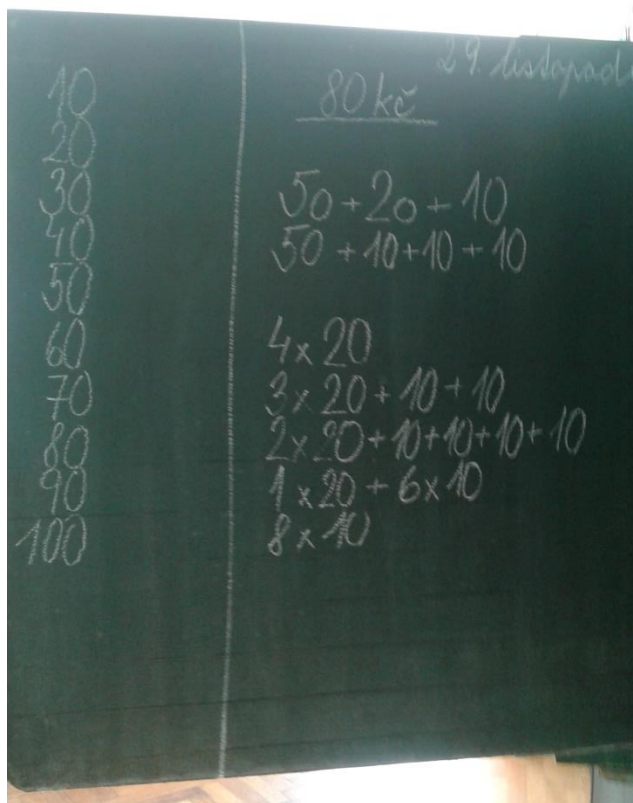 10
20
30
40
50
60
70
80
90
100
29. listopadu
80 kč
50 + 20 + 10
50 + 10 + 10 + 10
4 x 20
3 x 20 + 10 + 10
2 x 20 + 10 + 10 + 10 + 10
1 x 20 + 6 x 10
8 x 10